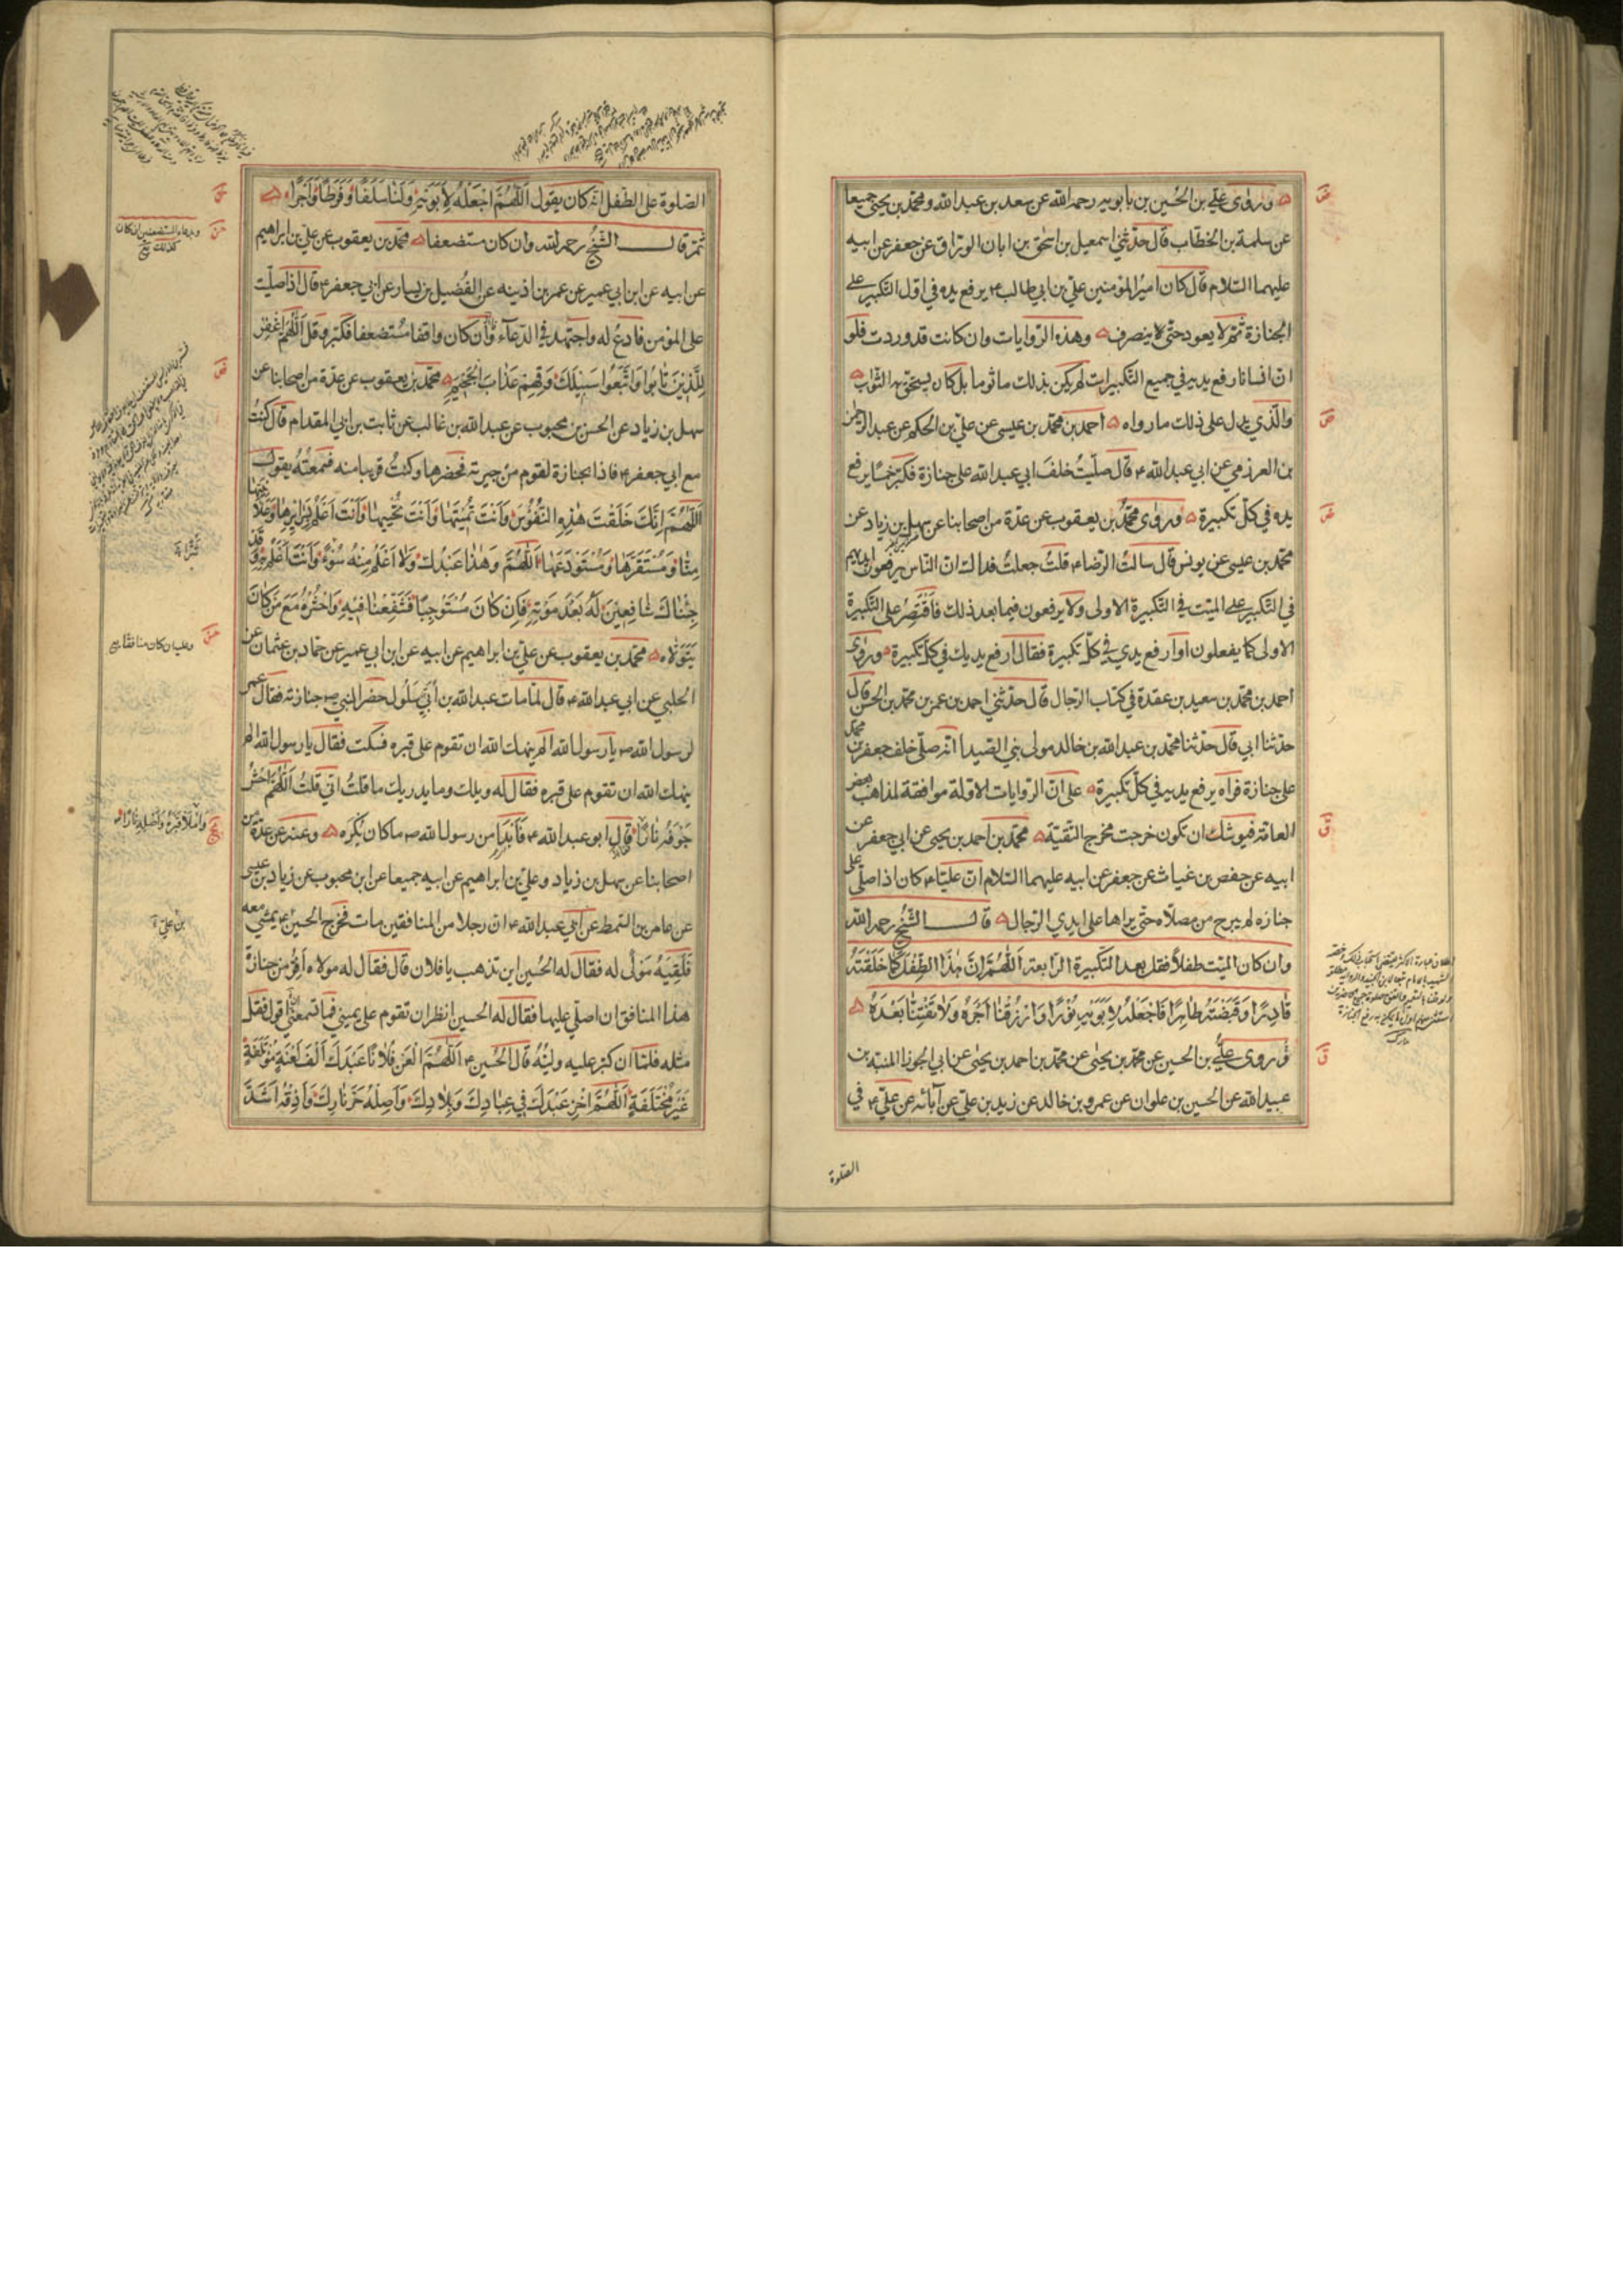 وروى علي بن الحسين بن بابويه رحمه الله عن سعد بن عبد الله ومحمد بن يحيى جميعا
عن سلمة بن الخطاب قال حدثني اسمعيل بن اسحق بن ابان الوراق عن جعفر عن ابيه
عليهما السلام قال كان امير المؤمنين علي بن ابي طالب ع يرفع يده في اول التكبير على
الجنازة ثم لا يعود حتى لا ينصرف وهذه الروايات وان كانت قد وردت فلو
ان انسانا رفع يديه في جميع التكبيرات لم يكن بذلك ماثوما بل كان يستحق به الثواب
والذي يدل على ذلك ما رواه احمد بن محمد بن عيسى عن علي بن الحكم عن عبد الرحمن
بن العرزمي عن ابي عبد الله ع قال صليت خلف ابي عبد الله على جنازة فكبر خمسا يرفع
يده في كل تكبيرة وروى محمد بن يعقوب عن عدة من اصحابنا عن سهل بن زياد عن
محمد بن عيسى عن يونس قال سالت الرضا ع قلت جعلت فداك ان الناس يرفعون ايديهم
في التكبير على الميت في التكبيرة الاولى ولا يرفعون فيما بعد ذلك فاقتصر على التكبيرة
الاولى كما يفعلون او ارفع يدي في كل تكبيرة فقال ارفع يديك في كل تكبيرة وروى
احمد بن محمد بن سعيد بن عقدة في كتاب الرجال قال حدثني احمد بن عمر بن محمد بن الحسن قال
حدثنا ابي قال حدثنا محمد بن عبد الله بن خالد مولى بني الصيدا انه صلى خلف جعفر بن محمد
على جنازة فرآه يرفع يديه في كل تكبيرة على ان الروايات الاولة موافقة لمذاهب بعض
العامة فيوشك ان تكون خرجت مخرج التقية محمد بن احمد بن يحيى عن ابي جعفر عن
ابيه عن حفص بن غياث عن جعفر عن ابيه عليهما السلام ان عليا ع كان اذا صلى على
جنازه لم يبرح من مصلاه حتى يراها على ايدي الرجال قال الشيخ رحمه الله
وان كان الميت طفلا فقل بعد التكبيرة الرابعة اللهم ان هذا الطفل كما خلقته
قادرا وقبضته طاهرا فاجعله لابويه نورا وارزقنا اجره ولا تفتنا بعده
وروى علي بن الحسين عن محمد بن يحيى عن محمد بن احمد بن يحيى عن ابي الجوزا المنبه بن
عبيد الله عن الحسين بن علوان عن عمرو بن خالد عن زيد بن علي عن آبائه عن علي ع في
الصلوة
الصلوة على الطفل انه كان يقول اللهم اجعله لابويه ولنا سلفا وفرطا واجرا
ثم قال الشيخ رحمه الله وان كان مستضعفا محمد بن يعقوب عن علي بن ابراهيم
عن ابيه عن ابن ابي عمير عن عمر بن اذينه عن الفضيل بن يسار عن ابي جعفر ع قال اذا صليت
على المؤمن فادع له واجتهد في الدعاء وان كان واقفا مستضعفا فكبر وقل اللهم اغفر
للذين تابوا واتبعوا سبيلك وقهم عذاب الجحيم محمد بن يعقوب عن عدة من اصحابنا عن
سهل بن زياد عن الحسن بن محبوب عن عبد الله بن غالب عن ثابت بن ابي المقدام قال كنت
مع ابي جعفر ع فاذا بجنازة لقوم من جيرته فحضرها وكنت قريبا منه فسمعته يقول
اللهم انك خلقت هذه النفوس وانت تميتها وانت تحييها وانت اعلم بسرايرها وعلانيتها
منا ومستقرها ومستودعها اللهم وهذا عبدك ولا اعلم منه سوءا وانت اعلم به وقد
جئناك شافعين له بعد موته فان كان مستوجبا فشفعنا فيه واحشره مع من كان
يتولاه محمد بن يعقوب عن علي بن ابراهيم عن ابيه عن ابن ابي عمير عن حماد بن عثمان عن
الحلبي عن ابي عبد الله ع قال لما مات عبد الله بن ابي سلول حضر النبي ص جنازته فقال عمر
لرسول الله ص يا رسول الله الم ينهك الله ان تقوم على قبره فسكت فقال يا رسول الله الم
ينهك الله ان تقوم على قبره فقال له ويلك وما يدريك ما قلت اني قلت اللهم احش
جوفه نارا قال ابو عبد الله ع فابدا من رسول الله ص ما كان يكره وعنه عن عدة من
اصحابنا عن سهل بن زياد وعلي بن ابراهيم عن ابيه جميعا عن ابن محبوب عن زياد بن عيسى
عن عامر بن السمط عن ابي عبد الله ع ان رجلا من المنافقين مات فخرج الحسين ع يمشي معه
فلقيه مولى له فقال له الحسين اين تذهب يا فلان قال فقال له مولاه افر من جنازة
هذا المنافق ان اصلي عليها فقال له الحسين انظر ان تقوم على يميني فما تسمعني اقول فقل
مثله فلما ان كبر عليه وليه قال الحسين ع اللهم العن فلانا عبدك الف لعنة مؤتلفة
غير مختلفة اللهم اخز عبدك في عبادك وبلادك واصله حر نارك واذقه اشد
وبدعاء المستضعفين ان كان
كذلك
وعليه ان كان منافقا
واملا قبره واصله نارا
بن علي